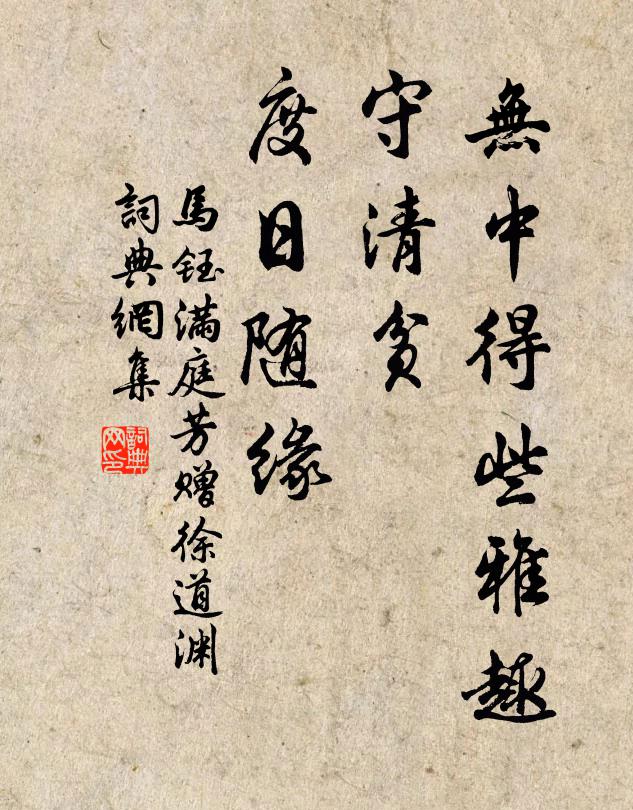 無中得些雅趣
守清貧
度日随緣
馬鈺满庭芳赠徐道渊
詞典網集
詞典
网印